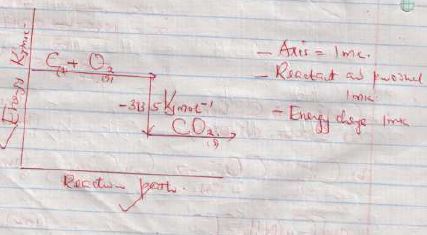 Energy KJmol-
C(s) + O2(g)
-393.5 KJmol⁻¹
CO2(g)
Reaction path.
- Axis = 1mk.
- Reactant and product 1mk
- Energy change 1mk